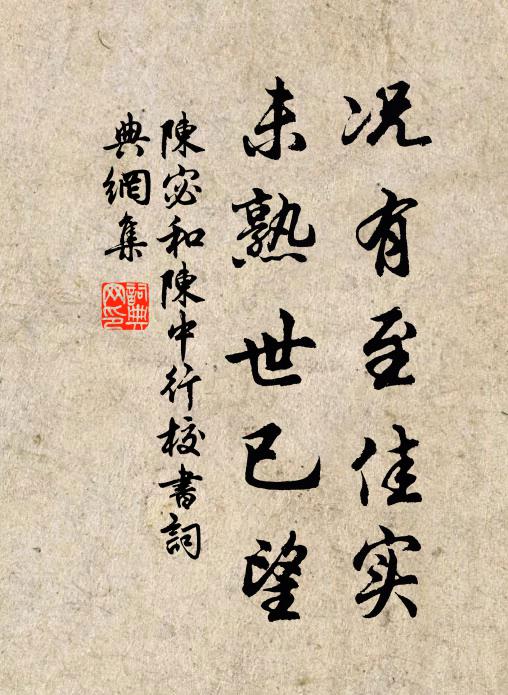 况有至佳实
未熟世已望
陳宓和陳中行校書詞
典網集
詞典網印